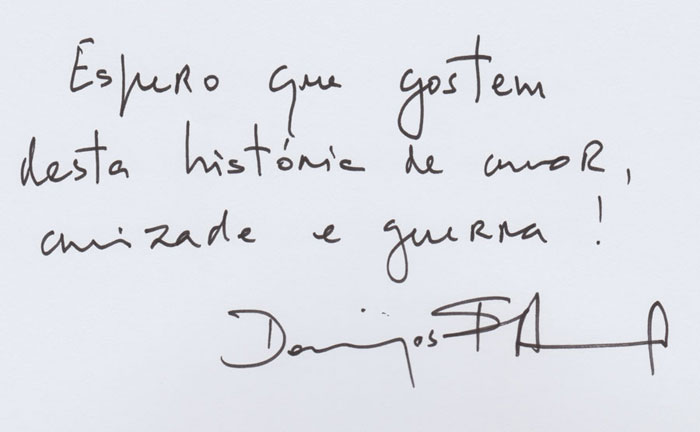 Espero que gostem
desta história de amor,
amizade e guerra!
Domingos